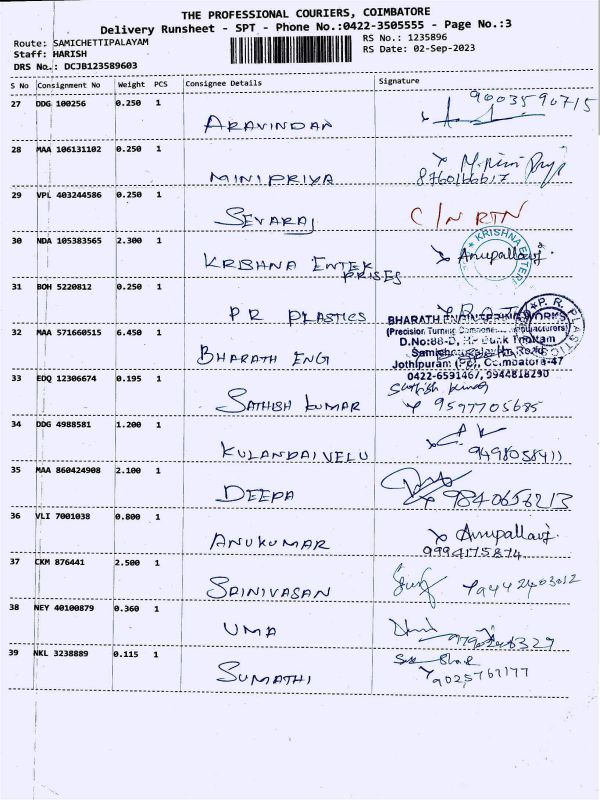 THE PROFESSIONAL COURIERS, COIMBATORE
Delivery Runsheet - SPT - Phone No.:0422-3505555 - Page No.:3
Route: SAMICHETTIPALAYAM RS No.: 1235896
Staff: HARISH RS Date: 02-Sep-2023
DRS No.: DCJB123589603
S No Consignment No Weight PCS Consignee Details Signature
27 DDG 100256 0.250 1 9003590715
ARAVINDAN
28 MAA 106131102 0.250 1
MINIPRIYA 8760166617
29 VPL 403244586 0.250 1
SEVARAJ C/N RTN
30 NDA 105383565 2.300 1 KRISHNA ENTER
KRISHNA ENTER Anupallavi
PRISES
31 BOH 5220812 0.250 1
PR PLASTICS
BHARATH ENGINEERING WORKS
32 MAA 571660515 6.450 1 (Precision Turning Components Manufacturers)
D.No:88-D,
BHARATH ENG Jothipuram (PO), Coimbatore-47
0422-6591467, 9944818290
33 EDQ 12306674 0.195 1 Sathish kumar
SATHISH KUMAR 9597705685
34 DDG 4988581 1.200 1
KULANDAIVELU 9498058411
35 MAA 860424908 2.100 1
DEEPA 9840656213
36 VLI 7001038 0.800 1 Anupallavi
ANUKUMAR 9994175874
37 CKM 876441 2.500 1
SRINIVASAN 9442403012
38 NEY 40100879 0.360 1
UMA
39 NKL 3238889 0.115 1
SUMATHI 9025767177